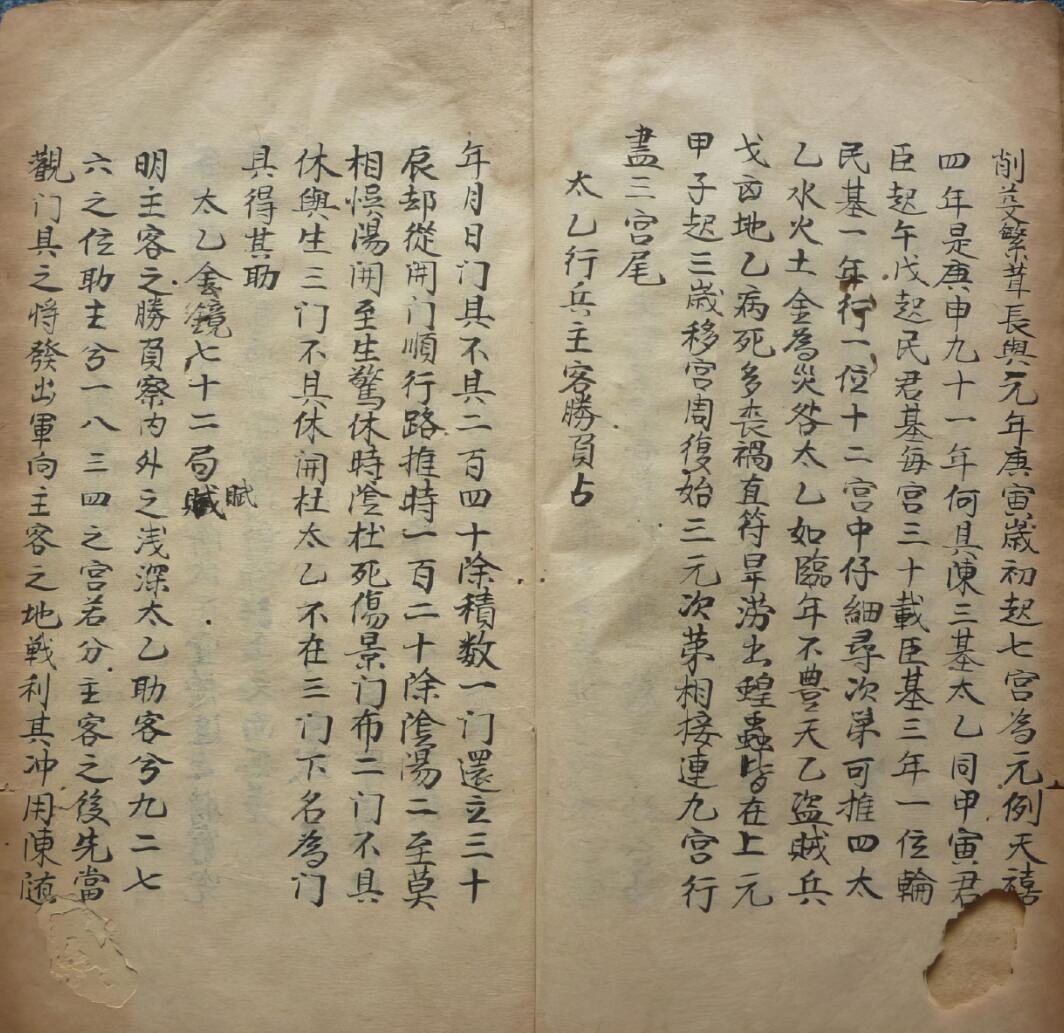 削芟繁茸長與元年庚寅歲初起七宮為元例天禧
四年是庚申九十一年何具陳三基太乙同甲寅君
臣起午戊起民君基每宮三十載臣基三年一位輪
民基一年行一位十二宮中仔細尋次第可推四太
乙水火土金為災咎太乙如臨年不豊天乙盜賊兵
戈凶地乙病死多丧禍直符旱澇出蝗蟲皆在上元
甲子起三歲移宮周復始三元次第相接連九宮行
盡三宮尾
太乙行兵主客勝負占
年月日门具不具二百四十除積数一门還立三十
辰却從開门順行路推時一百二十除隂陽二至莫
相悞陽開至生驚休時隂杜死傷景门布二门不具
休與生三门不具休開杜太乙不在三门下名為门
具得其助
太乙金鏡七十二局賦
明主客之勝負察内外之浅深太乙助客兮九二七
六之位助主兮一八三四之宮若分主客之後先當
觀门具之将發出軍向主客之地戰利其冲用陳随